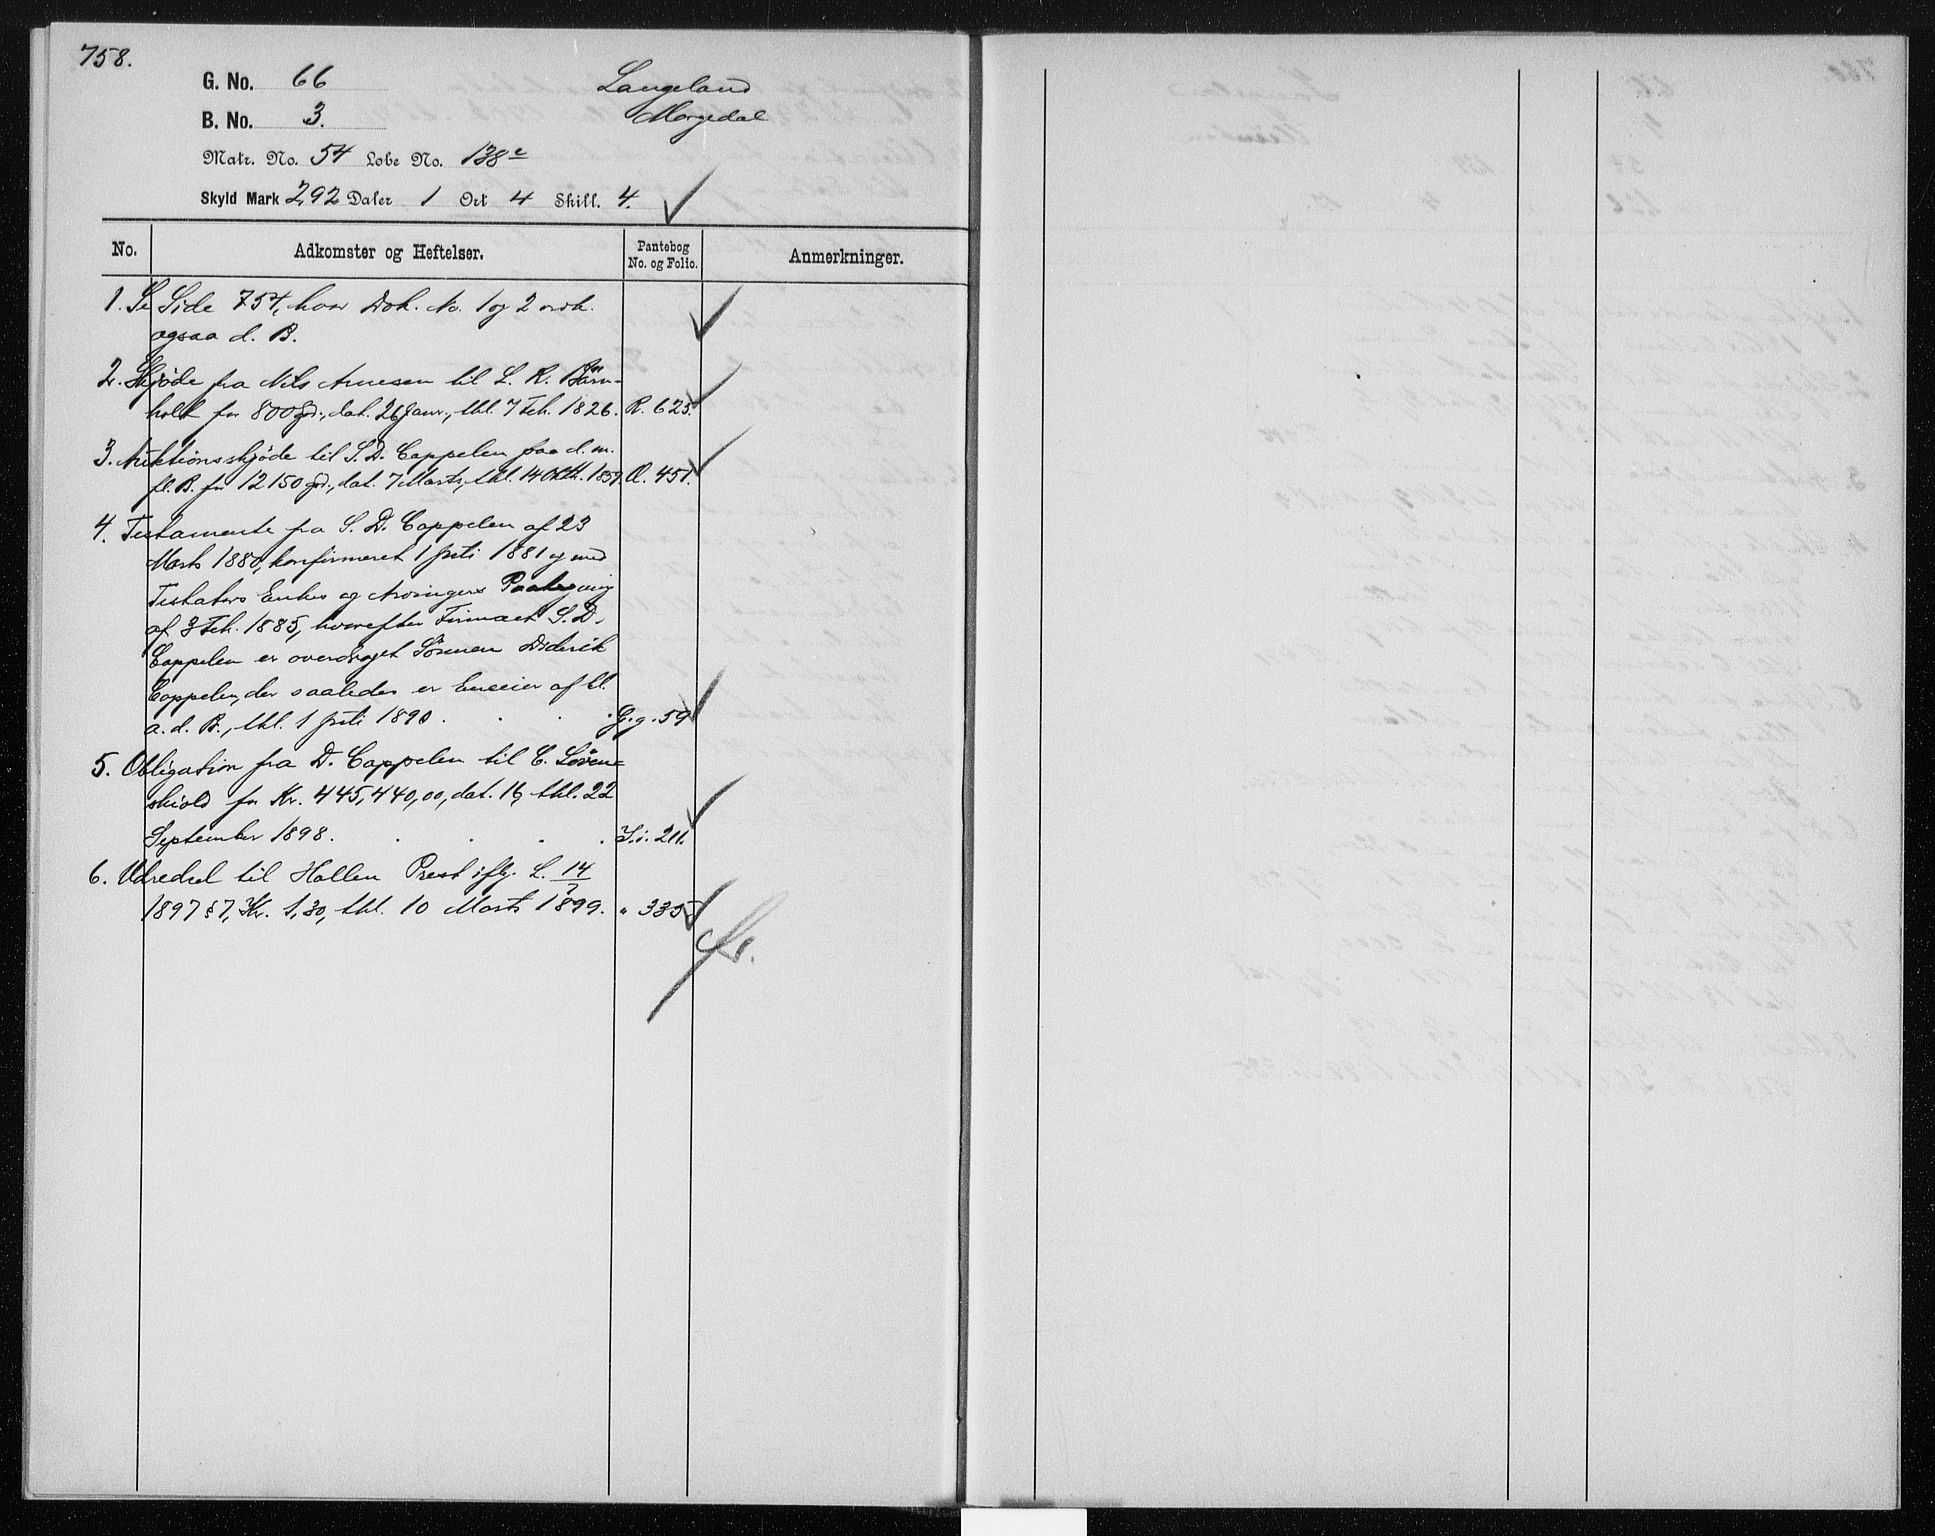 758.
G. No. 66 Langeland
B. No. 3. Morgedal
Matr. No. 54 Lobe No. 138c
Skyld Mark 2,92 Daler 1 Ort 4 Skill. 4.
No. Adkomster og Heftelser. Pantebog No. og Folio. Anmerkninger.
1. Se Side 754, hvor Dok. No. 1 og 2 vedk.
ogsaa d. B.
2. Skjöde fra Nils Arnesen til L. R. Börn-
holt for 800 spd., dat. 26 Janr., thl. 7 Feb. 1826. R. 625.
3. Auktionsskjöde til S. D. Cappelen paa d. m.
fl. B. for 12150 spd., dat. 7 Marts, thl. 14 Oktr. 1859. Q. 451.
4. Testamente fra S. D. Cappelen af 23
Marts 1880, konfirmeret 1 Juli 1881 og med
Testators Enkes og Arvingers Paategning
af 3 Feb. 1885, hvorefter Firmaet S. D.
Cappelen er overdraget Sönnen Diderik
Cappelen, der saaledes er Eneeier af bl.
a. d. B., thl. 1 Juli 1890. G.g. 59
5. Obligation fra D. Cappelen til C. Löven-
skiold for Kr. 445,440,00, dat. 16, thl. 22
September 1898. I.i. 211.
6. Udredsel til Hollen Prest iflg. L. 14/7
1897 § 7, Kr. 1,30, thl. 10 Marts 1899. " 335